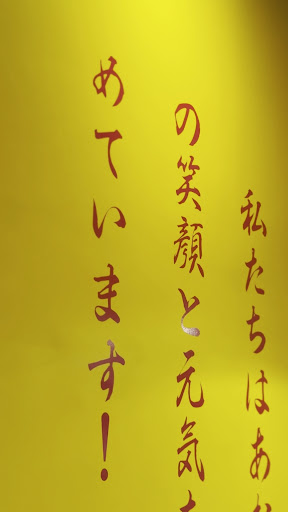 私たちはあ
の笑顔と元気
めています!